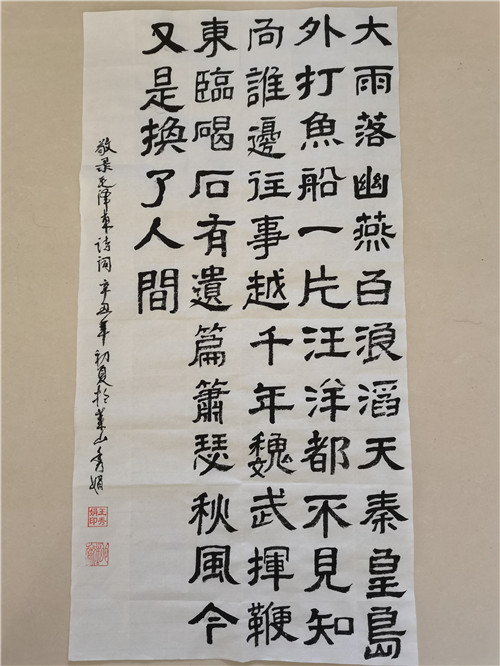 大雨落幽燕百浪滔天秦皇島
外打魚船一片汪洋都不見知
向誰邊往事越千年魏武揮鞭
東臨碣石有遺篇簫瑟秋風今
又是換了人間
敬录毛泽東詩词辛丑年初夏於萊山秀娟
王秀娟印